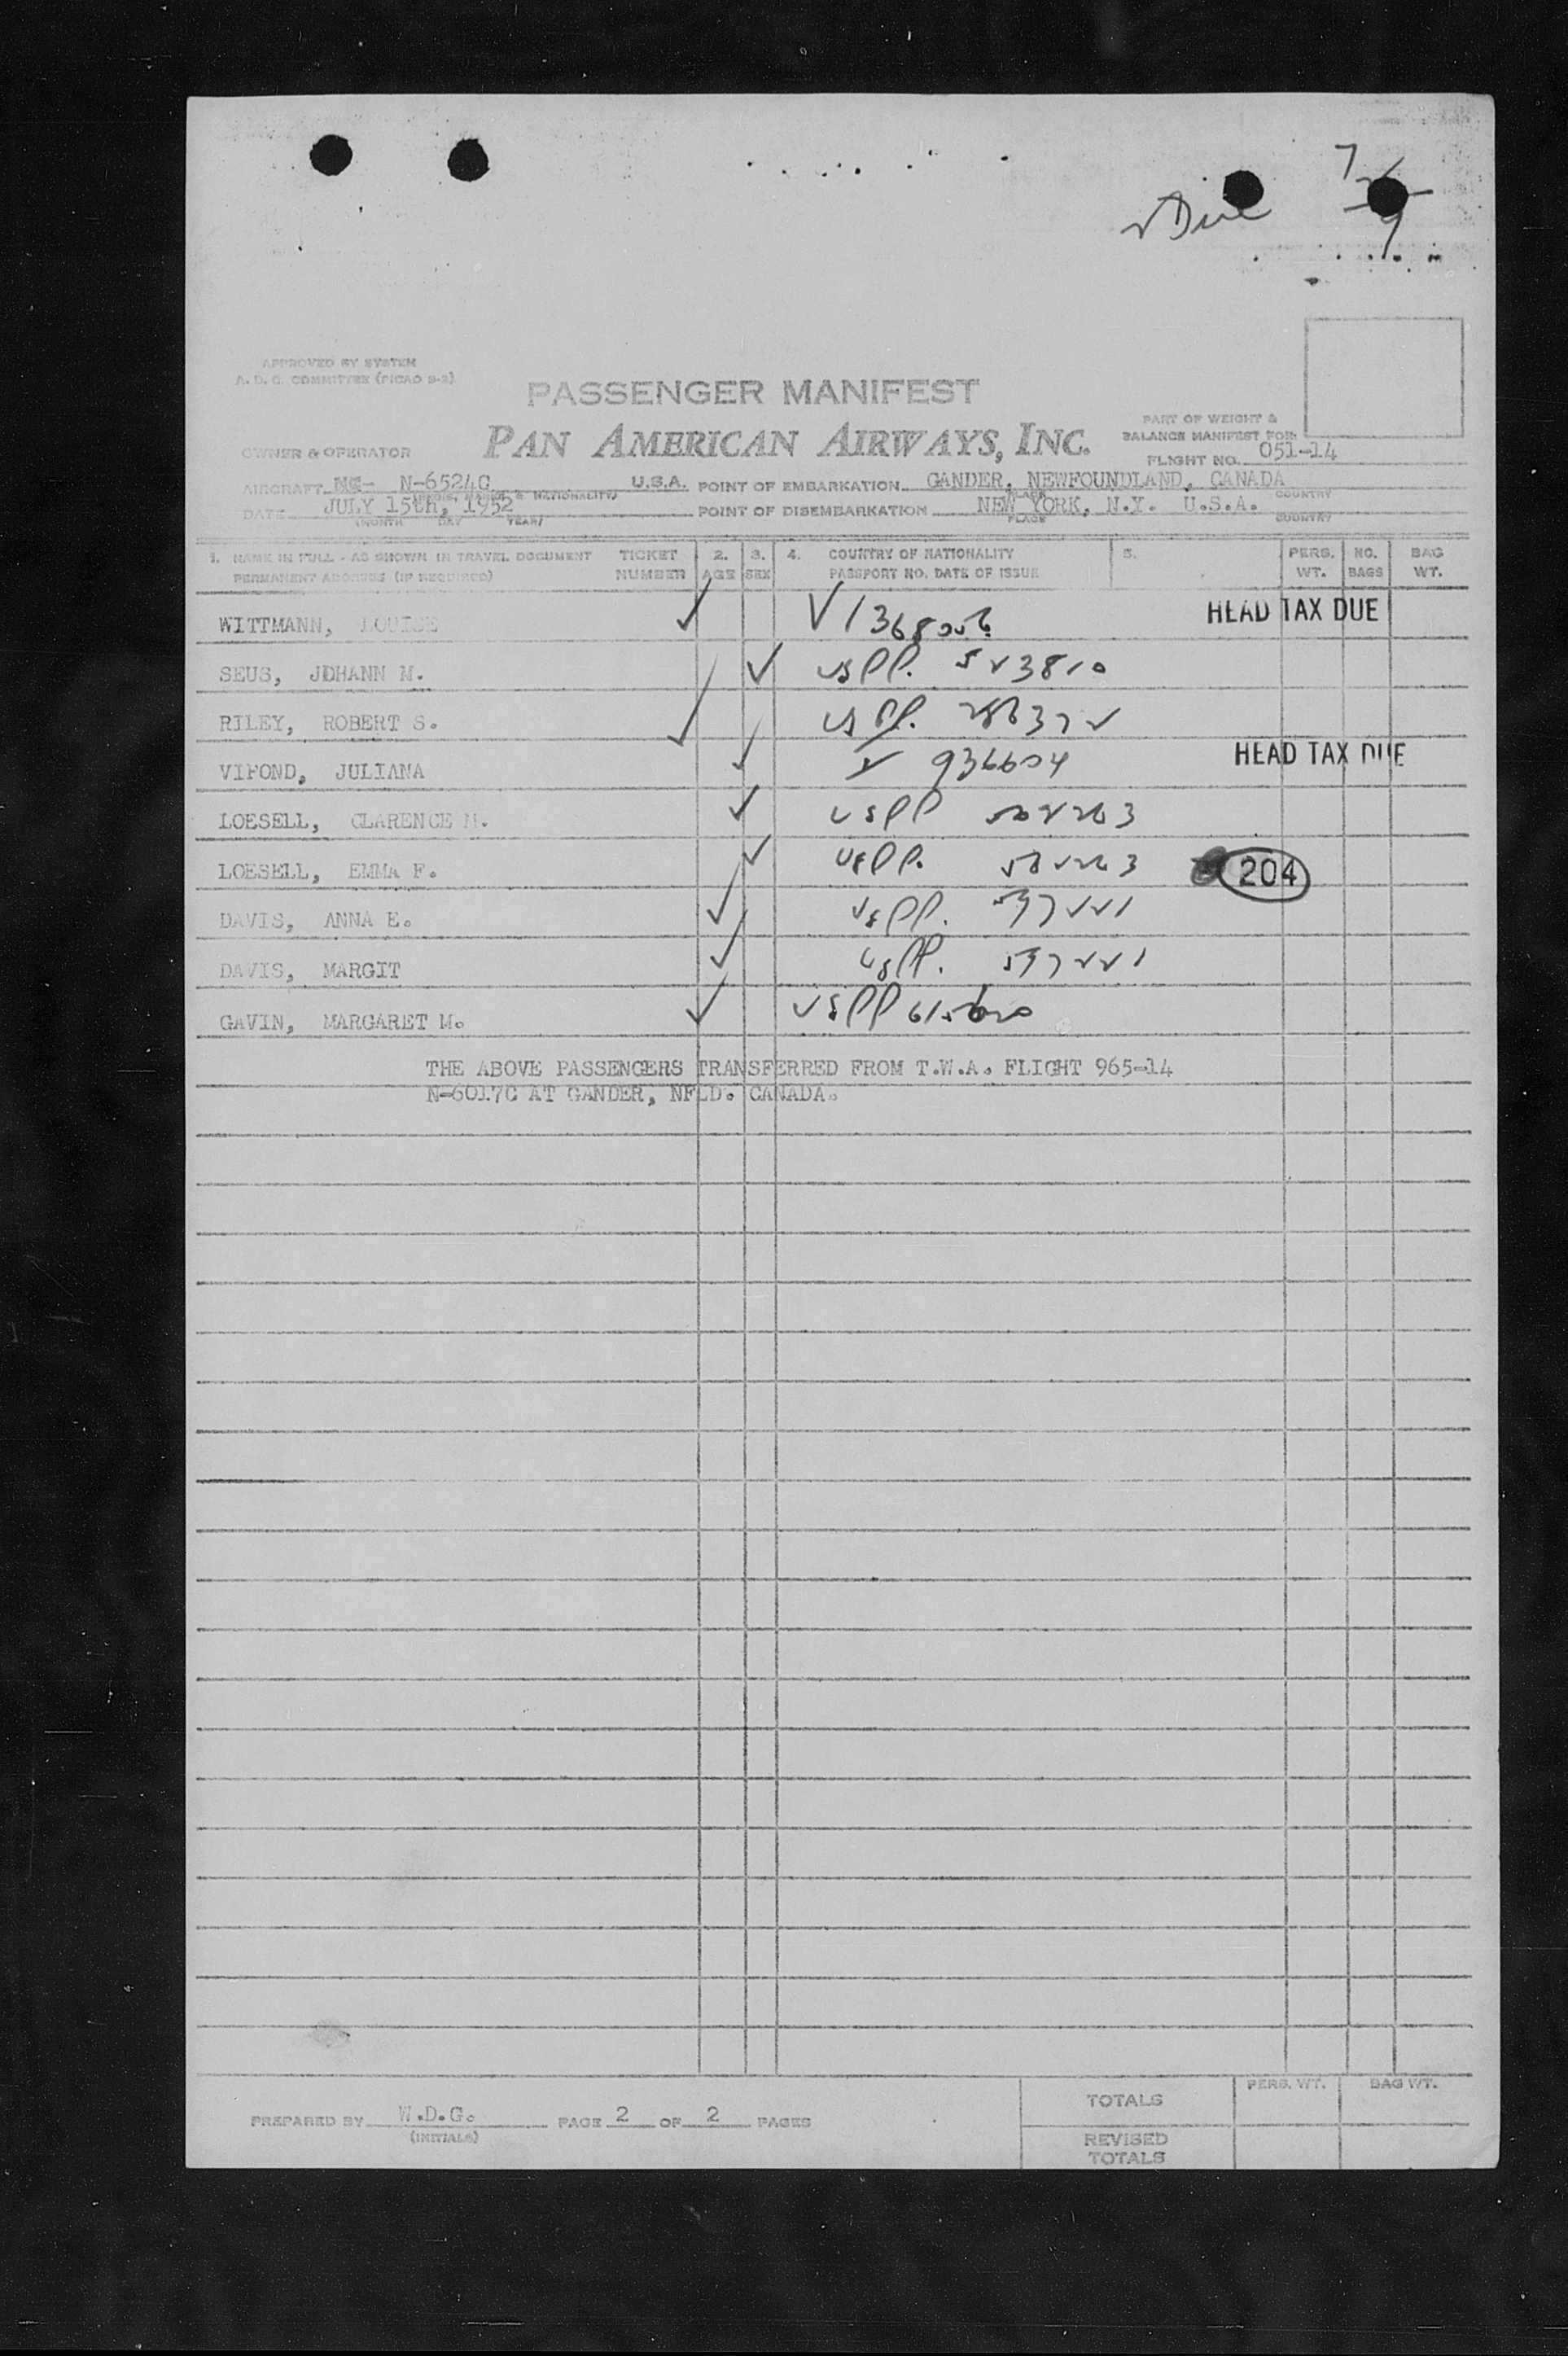 2 Due 7/9
APPROVED BY SYSTEM
A. D. C. COMMITTEE (PICAO 9-2)
PASSENGER MANIFEST
PAN AMERICAN AIRWAYS, INC.
PART OF WEIGHT &
BALANCE MANIFEST FOR:
OWNER & OPERATOR
FLIGHT NO. 051-14
AIRCRAFT NC- N-6524C U.S.A. POINT OF EMBARKATION GANDER, NEWFOUNDLAND, CANADA
(REGIS. MARKS & NATIONALITY) PLACE COUNTRY
DATE JULY 15th, 1952 POINT OF DISEMBARKATION NEW YORK, N.Y. U.S.A.
(MONTH DAY YEAR) PLACE COUNTRY
1. NAME IN FULL - AS SHOWN IN TRAVEL DOCUMENT TICKET 2. 3. 4. COUNTRY OF NATIONALITY 5. PERS. NO. BAG
PERMANENT ADDRESS (IF REQUIRED) NUMBER AGE SEX PASSPORT NO. DATE OF ISSUE WT. BAGS WT.
WITTMANN, LOUISE V 1368056 HEAD TAX DUE
SEUS, JOHANN M. USPP. 523810
RILEY, ROBERT S. US PP.
VIPOND, JULIANA V 936604 HEAD TAX DUE
LOESELL, CLARENCE M. USPP
LOESELL, EMMA F. USPP. 204
DAVIS, ANNA E. USPP. 597221
DAVIS, MARGIT USPP. 597221
GAVIN, MARGARET M. USPP
THE ABOVE PASSENGERS TRANSFERRED FROM T.W.A. FLIGHT 965-14
N-6017C AT GANDER, NFLD. CANADA.
PREPARED BY W.D.G. PAGE 2 OF 2 PAGES
(INITIALS)
TOTALS PERS. WT. BAG WT.
REVISED
TOTALS